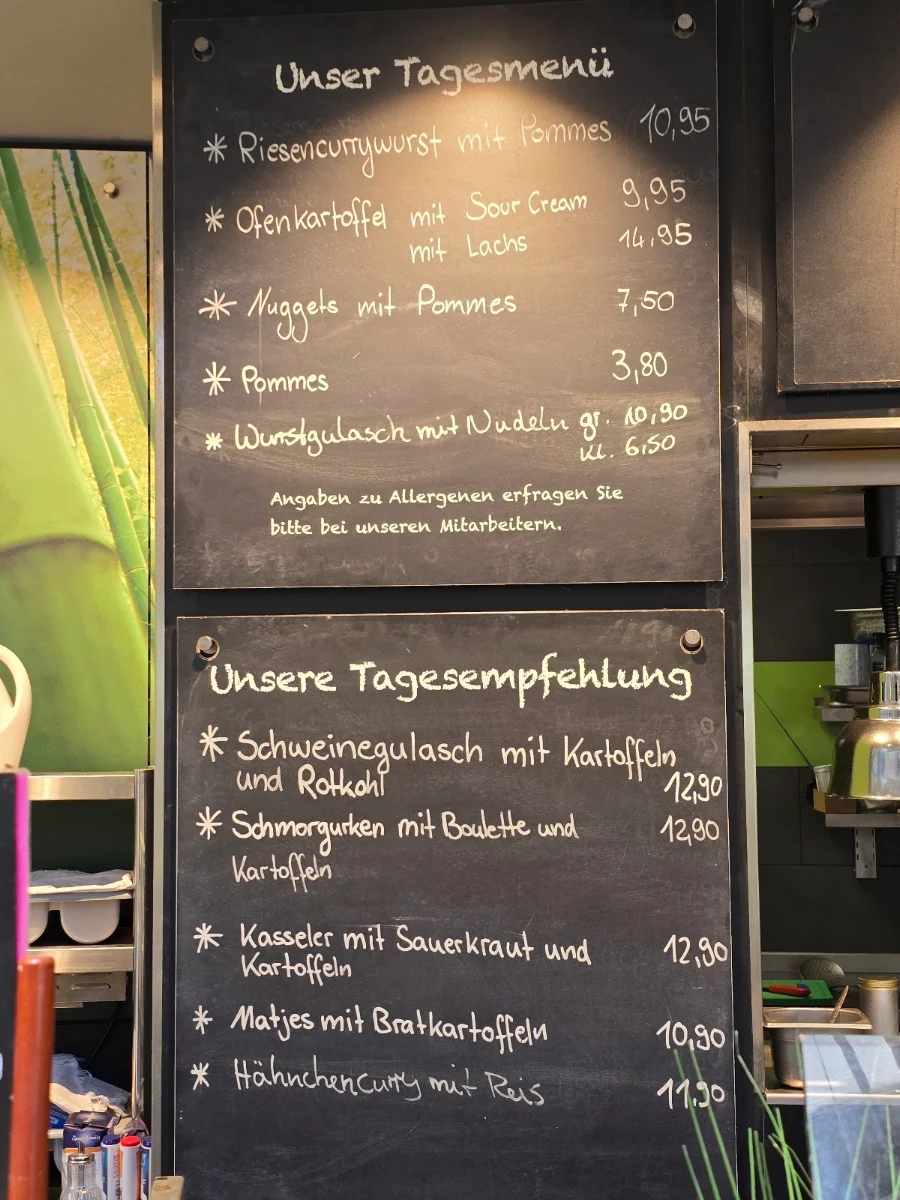 Unser Tagesmenü
* Riesencurrywurst mit Pommes 10,95
* Ofenkartoffel mit Sour Cream 9,95
mit Lachs 14,95
* Nuggets mit Pommes 7,50
* Pommes 3,80
* Wurstgulasch mit Nudeln gr. 10,90
kl. 6,50
Angaben zu Allergenen erfragen Sie
bitte bei unseren Mitarbeitern.
Unsere Tagesempfehlung
* Schweinegulasch mit Kartoffeln
und Rotkohl 12,90
* Schmorgurken mit Boulette und 12,90
Kartoffeln
* Kasseler mit Sauerkraut und 12,90
Kartoffeln
* Matjes mit Bratkartoffeln 10,90
* Hähnchencurry mit Reis 11,90